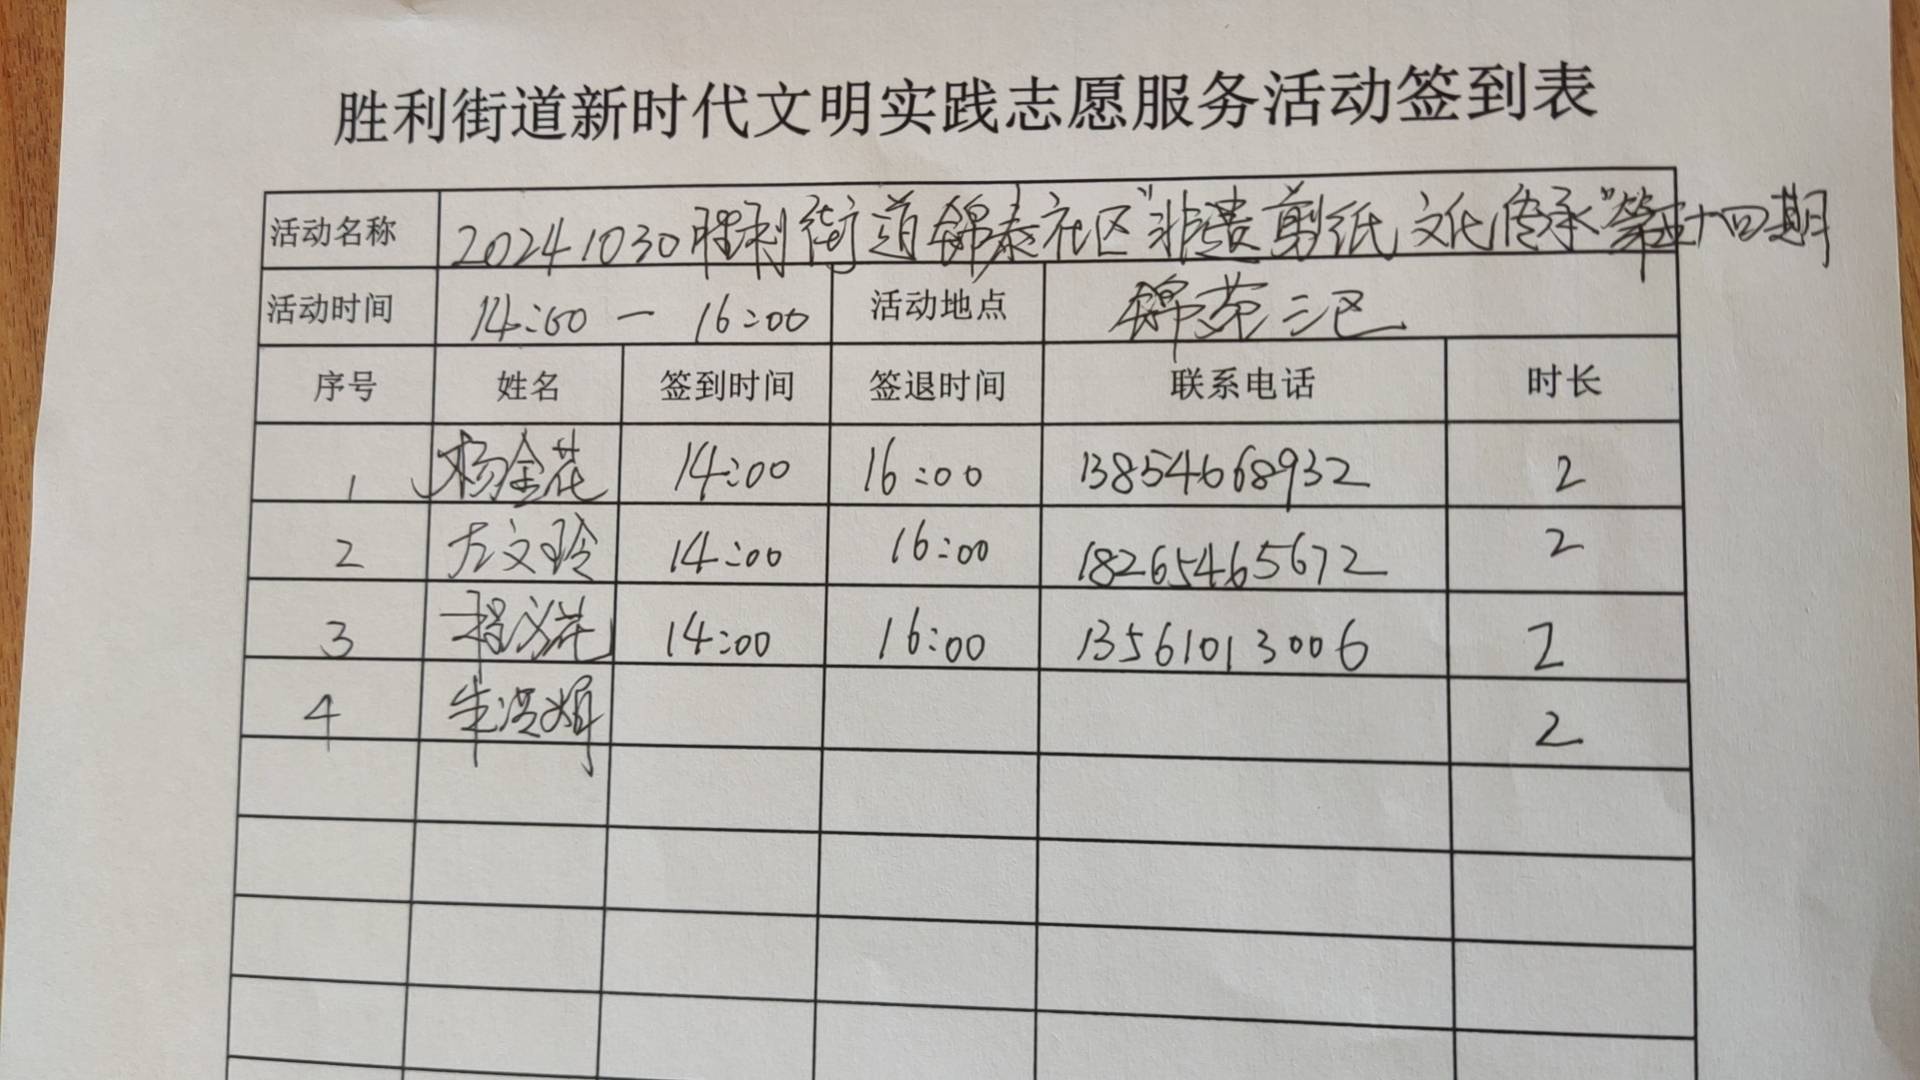 胜利街道新时代文明实践志愿服务活动签到表
活动名称 20241030胜利街道锦泰社区"非遗剪纸文化传承"第五十四期
活动时间 14:00 — 16:00 活动地点 锦苑二区
序号 姓名 签到时间 签退时间 联系电话 时长
1 杨金花 14:00 16:00 13854668932 2
2 左文玲 14:00 16:00 18265465672 2
3 程义花 14:00 16:00 13561013006 2
4 朱洪娟 2